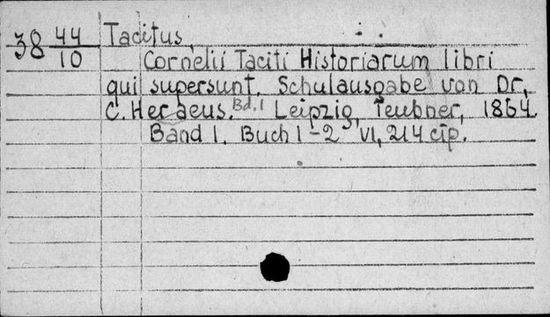 38 44/10 Tacitus,
Cornelii Taciti Historiarum libri
qui supersunt. Schulausgabe von Dr.
C. Heraeus. Bd. 1 Leipzig, Teubner, 1864.
Band 1. Buch 1-2 VI, 214 стр.